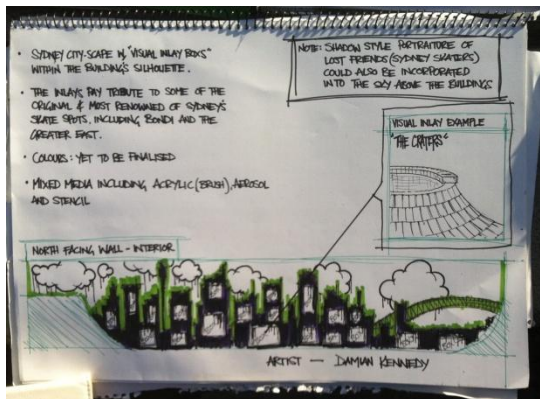 • SYDNEY CITY-SCAPE W/ "VISUAL INLAY BOXS"
WITHIN THE BUILDING'S SILHOUETTE.
• THE INLAY'S PAY TRIBUTE TO SOME OF THE
ORIGINAL & MOST RENOWNED OF SYDNEY'S
SKATE SPOTS, INCLUDING BONDI AND THE
GREATER EAST.
• COLOURS: YET TO BE FINALISED
• MIXED MEDIA INCLUDING ACRYLIC (BRUSH), AEROSOL
AND STENCIL
NOTE: SHADOW STYLE PORTRAITURE OF
LOST FRIENDS (SYDNEY SKATERS)
COULD ALSO BE INCORPORATED
INTO THE SKY ABOVE THE BUILDINGS
VISUAL INLAY EXAMPLE
"THE CRATERS"
NORTH FACING WALL - INTERIOR
ARTIST — DAMIAN KENNEDY